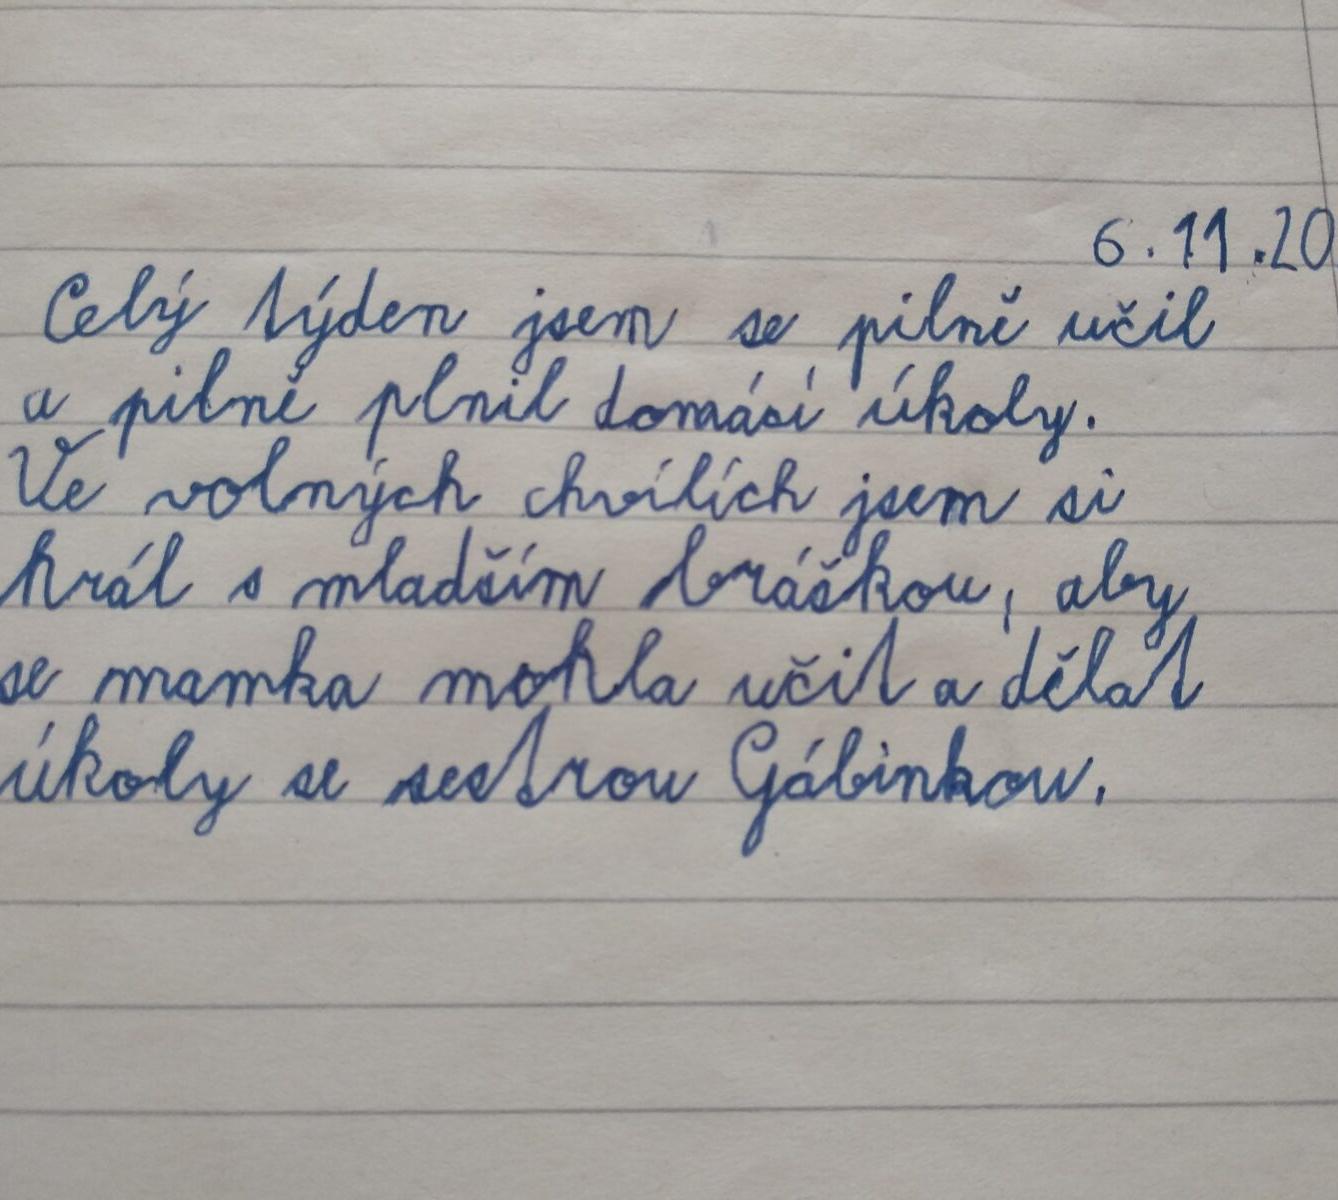 6.11.20
Celý týden jsem se pilně učil
a pilně plnil domásí úkoly.
Ve volných chvílích jsem si
hrál s mladším bráškou, aby
se mamka mohla učit a dělat
úkoly se sestrou Gábinkou.